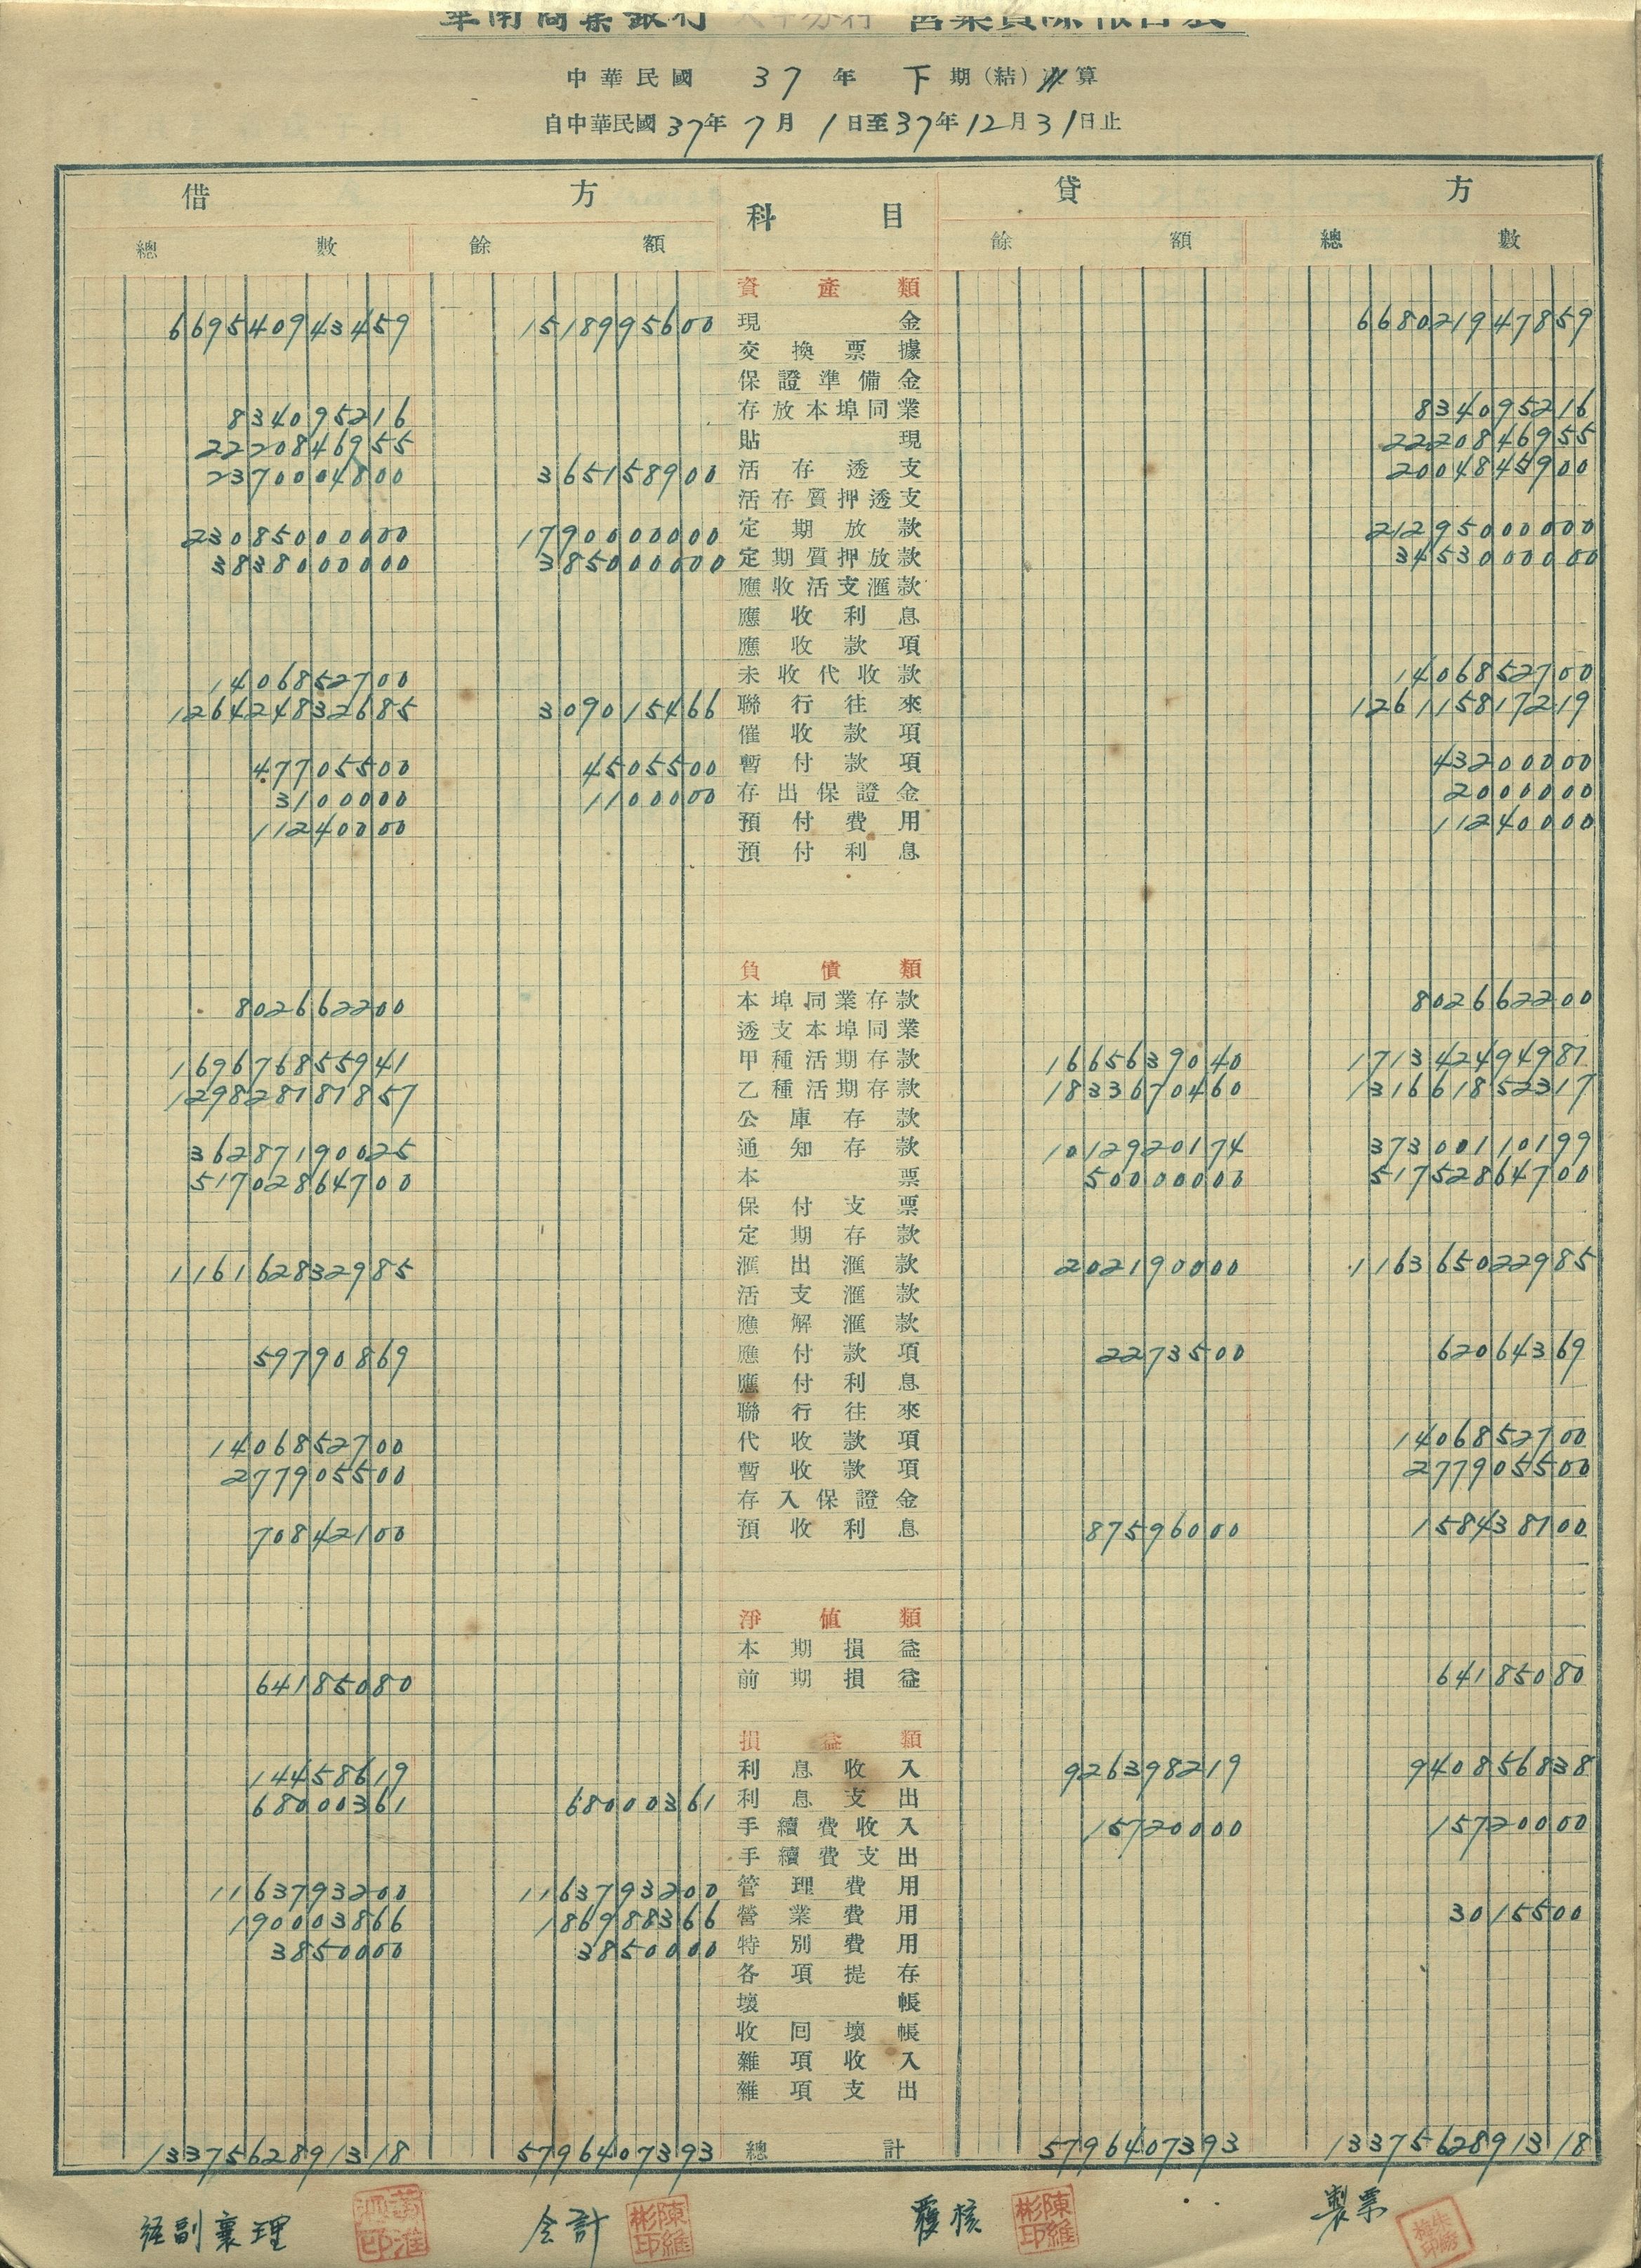 華南商業銀行 營業實際報告表
中華民國 37 年 下 期(結)決算
自中華民國37年7月1日至37年12月31日止
借方 科目 貸方
總數 餘額 餘額 總數
資產類
669540943459 1518995600 現金 668021947859
交換票據
保證準備金
834095216 存放本埠同業 834095216
2220846955 貼現 2220846955
2370004800 365158900 活存透支 2004845900
活存質押透支
23085000000 1790000000 定期放款 21295000000
3838000000 385000000 定期質押放款 3453000000
應收活支滙款
應收利息
應收款項
1406852700 未收代收款 1406852700
126424832685 309015466 聯行往來 126115817219
催收款項
47705500 4505500 暫付款項 43200000
3100000 1100000 存出保證金 2000000
11240000 預付費用 11240000
預付利息
負債類
802662200 本埠同業存款 802662200
透支本埠同業
169676855941 1665639040 甲種活期存款 171342494981
129828181857 1833670460 乙種活期存款 131661852317
公庫存款
36287190025 1012920174 通知存款 37300110199
51702864700 50000000 本票 51752864700
保付支票
定期存款
116162832985 202190000 滙出滙款 116365022985
活支滙款
應解滙款
59790869 2273500 應付款項 62064369
應付利息
聯行往來
1406852700 代收款項 1406852700
277905500 暫收款項 277905500
存入保證金
70842100 87596000 預收利息 158438100
淨值類
本期損益
64185080 前期損益 64185080
損益類
14458619 926398219 利息收入 940856838
68000361 68000361 利息支出
手續費收入 15720000 15720000
手續費支出
1163793200 1163793200 管理費用
190003866 186988366 營業費用 3015500
3850000 3850000 特別費用
各項提存
壞帳
收回壞帳
雜項收入
雜項支出
1337562891318 5796407393 總計 5796407393 1337562891318
経副襄理 会計 覆核 製票
陳維彬印 陳維彬印